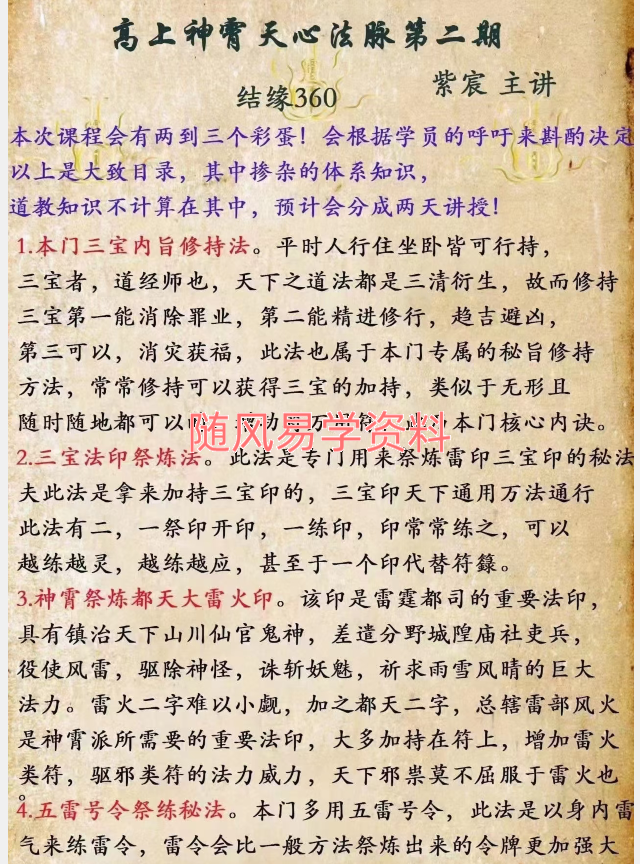 高上神霄天心法脉第二期
紫宸 主讲
结缘360
本次课程会有两到三个彩蛋！会根据学员的呼吁来斟酌决定
以上是大致目录，其中掺杂的体系知识，
道教知识不计算在其中，预计会分成两天讲授！
1.本门三宝内旨修持法。平时人行住坐卧皆可行持，
三宝者，道经师也，天下之道法都是三清衍生，故而修持
三宝第一能消除罪业，第二能精进修行，趋吉避凶，
第三可以，消灾获福，此法也属于本门专属的秘旨修持
方法，常常修持可以获得三宝的加持，类似于无形且
随时随地都可以 本门核心内诀。
随风易学资料
2.三宝法印祭炼法。此法是专门用来祭炼雷印三宝印的秘法
夫此法是拿来加持三宝印的，三宝印天下通用万法通行
此法有二，一祭印开印，一练印，印常常练之，可以
越练越灵，越练越应，甚至于一个印代替符籙。
3.神霄祭炼都天大雷火印。该印是雷霆都司的重要法印，
具有镇治天下山川仙官鬼神，差遣分野城隍庙社吏兵，
役使风雷，驱除神怪，诛斩妖魅，祈求雨雪风晴的巨大
法力。雷火二字难以小觑，加之都天二字，总辖雷部风火
是神霄派所需要的重要法印，大多加持在符上，增加雷火
类符，驱邪类符的法力威力，天下邪祟莫不屈服于雷火也
。
4.五雷号令祭练秘法。本门多用五雷号令，此法是以身内雷
气来练雷令，雷令会比一般方法祭炼出来的令牌更加强大